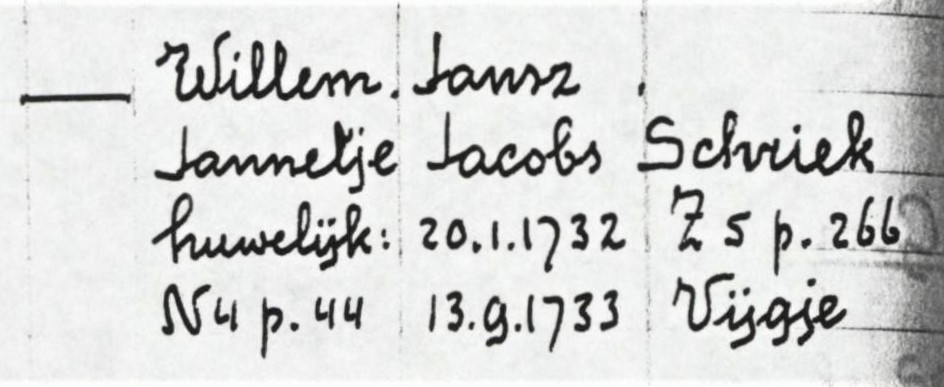 Willem. Jansz.
Jannetje Jacobs Schriek
huwelijk: 20.1.1732 Z 5 p. 266
N4 p. 44 13.9.1733 Vijgje